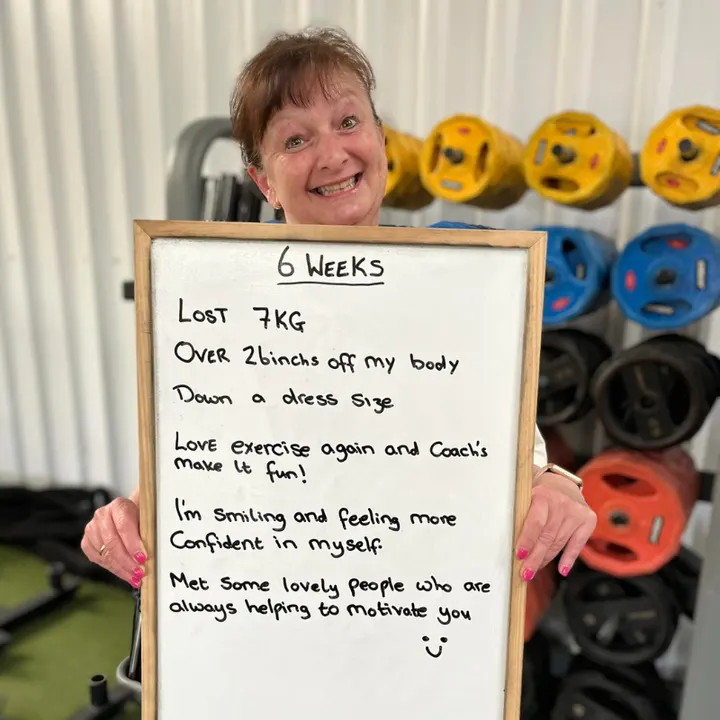 6 WEEKS
LOST 7KG
OVER 26inchs off my body
Down a dress size
LOVE exercise again and Coach's
make it fun!
I'm smiling and feeling more
Confident in myself.
Met some lovely people who are
always helping to motivate you